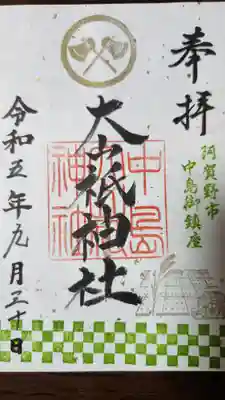 奉拝
阿賀野市
中島御鎮座
大山祇神社
中島
神社
令和五年九月三十日